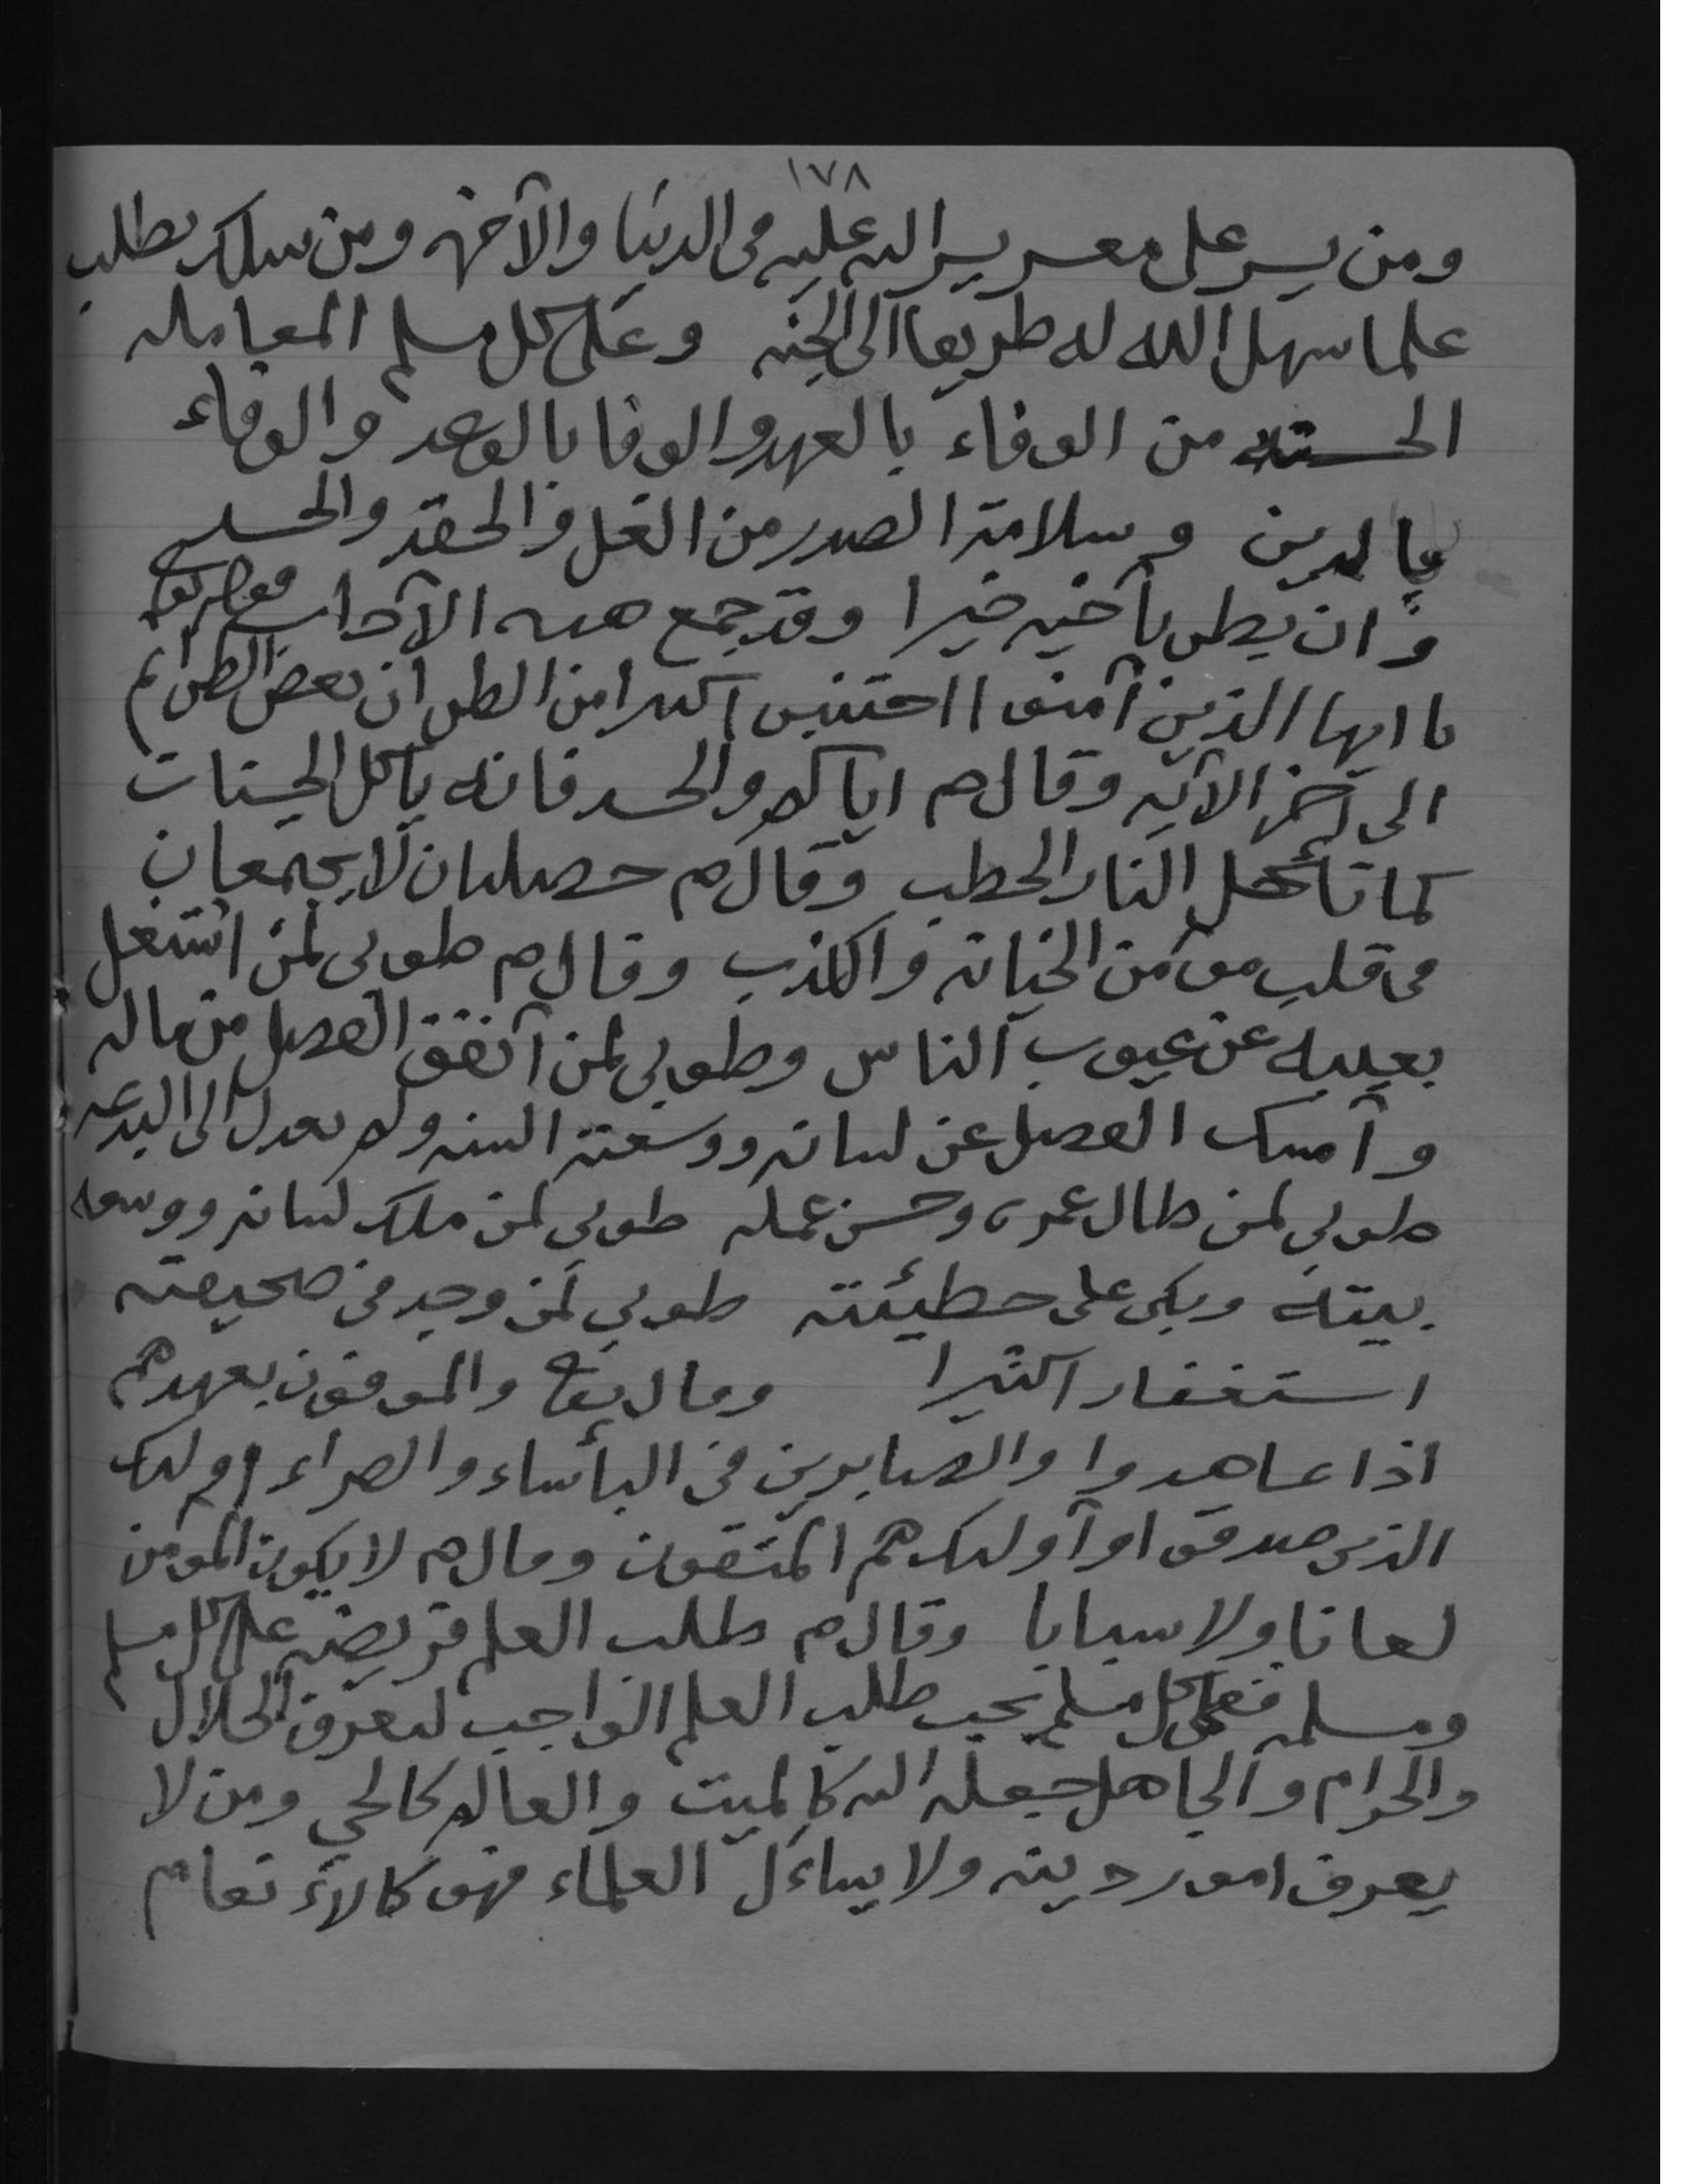 ١٧٨
ومن يسر على معسر يسر الله عليه في الدنيا والآخره ومن سلك بطلب
علما سهل الله له طريقا الى الجنه وعلى كل مسلم المعامله
الحسنه من الوفاء بالعهد والوفا بالوعد والوفاء
بالدين وسلامة الصدر من الغل والحقد والحسد
وان يظن بأخيه خيرا وقد جمع هذه الآداب قوله تعالى
يا ايها الذين آمنوا اجتنبوا كثيرا من الظن ان بعض الظن اثم
الى آخر الآيه وقال م اياكم والحسد فانه يأكل الحسنات
كما تأكل النار الحطب وقال م خصلتان لا يجتمعان
في قلب مؤمن الخيانه والكذب وقال م طوبى لمن اشتغل
بعيبه عن عيوب الناس وطوبى لمن أنفق الفضل من ماله
وأمسك الفضل عن لسانه ووسعته السنه ولم يعدل الى البدعه
طوبى لمن طال عمره وحسن عمله طوبى لمن ملك لسانه ووسعه
بيته وبكى على خطيئته طوبى لمن وجد في صحيفته
استغفارا كثيرا وقال تعالى والموفون بعهدهم
اذا عاهدوا والصابرين في البأساء والضراء اولئك
الذين صدقوا وأولئك هم المتقون وقال م لا يكون المؤمن
لعانا ولا سبابا وقال م طلب العلم فريضه على كل مسلم
ومسلمه فعلى كل مسلم يجب طلب العلم الواجب ليعرف الحلال
والحرام والجاهل جعله الله كالميت والعالم كالحي ومن لا
يعرف امور دينه ولا يساءل العلماء فهو كالأنعام